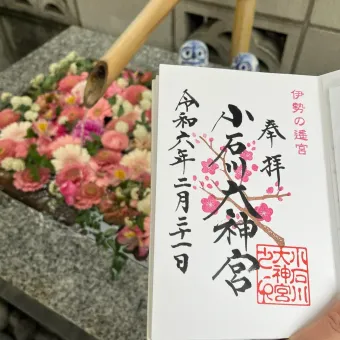 伊勢の遙宮
奉拝
小石川大神宮
令和六年二月二十一日
小石川
大神宮